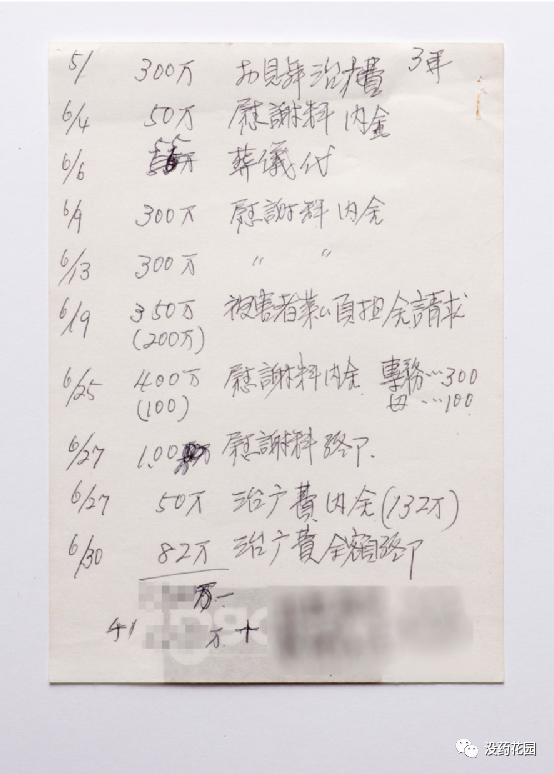 5/1 300万 お見舞治療費 3年
6/4 50万 慰謝料内金
6/6 葬儀代
6/9 300万 慰謝料内金
6/13 300万 〃 〃
6/19 350万 被害者第 負担金請求
(200万)
6/25 400万 慰謝料内金 専務…300
(100) 母…100
6/27 100 慰謝料終了.
6/27 50万 治疒費内金(132万)
6/30 82万 治疒費全額終了
万
万 +
没药花园